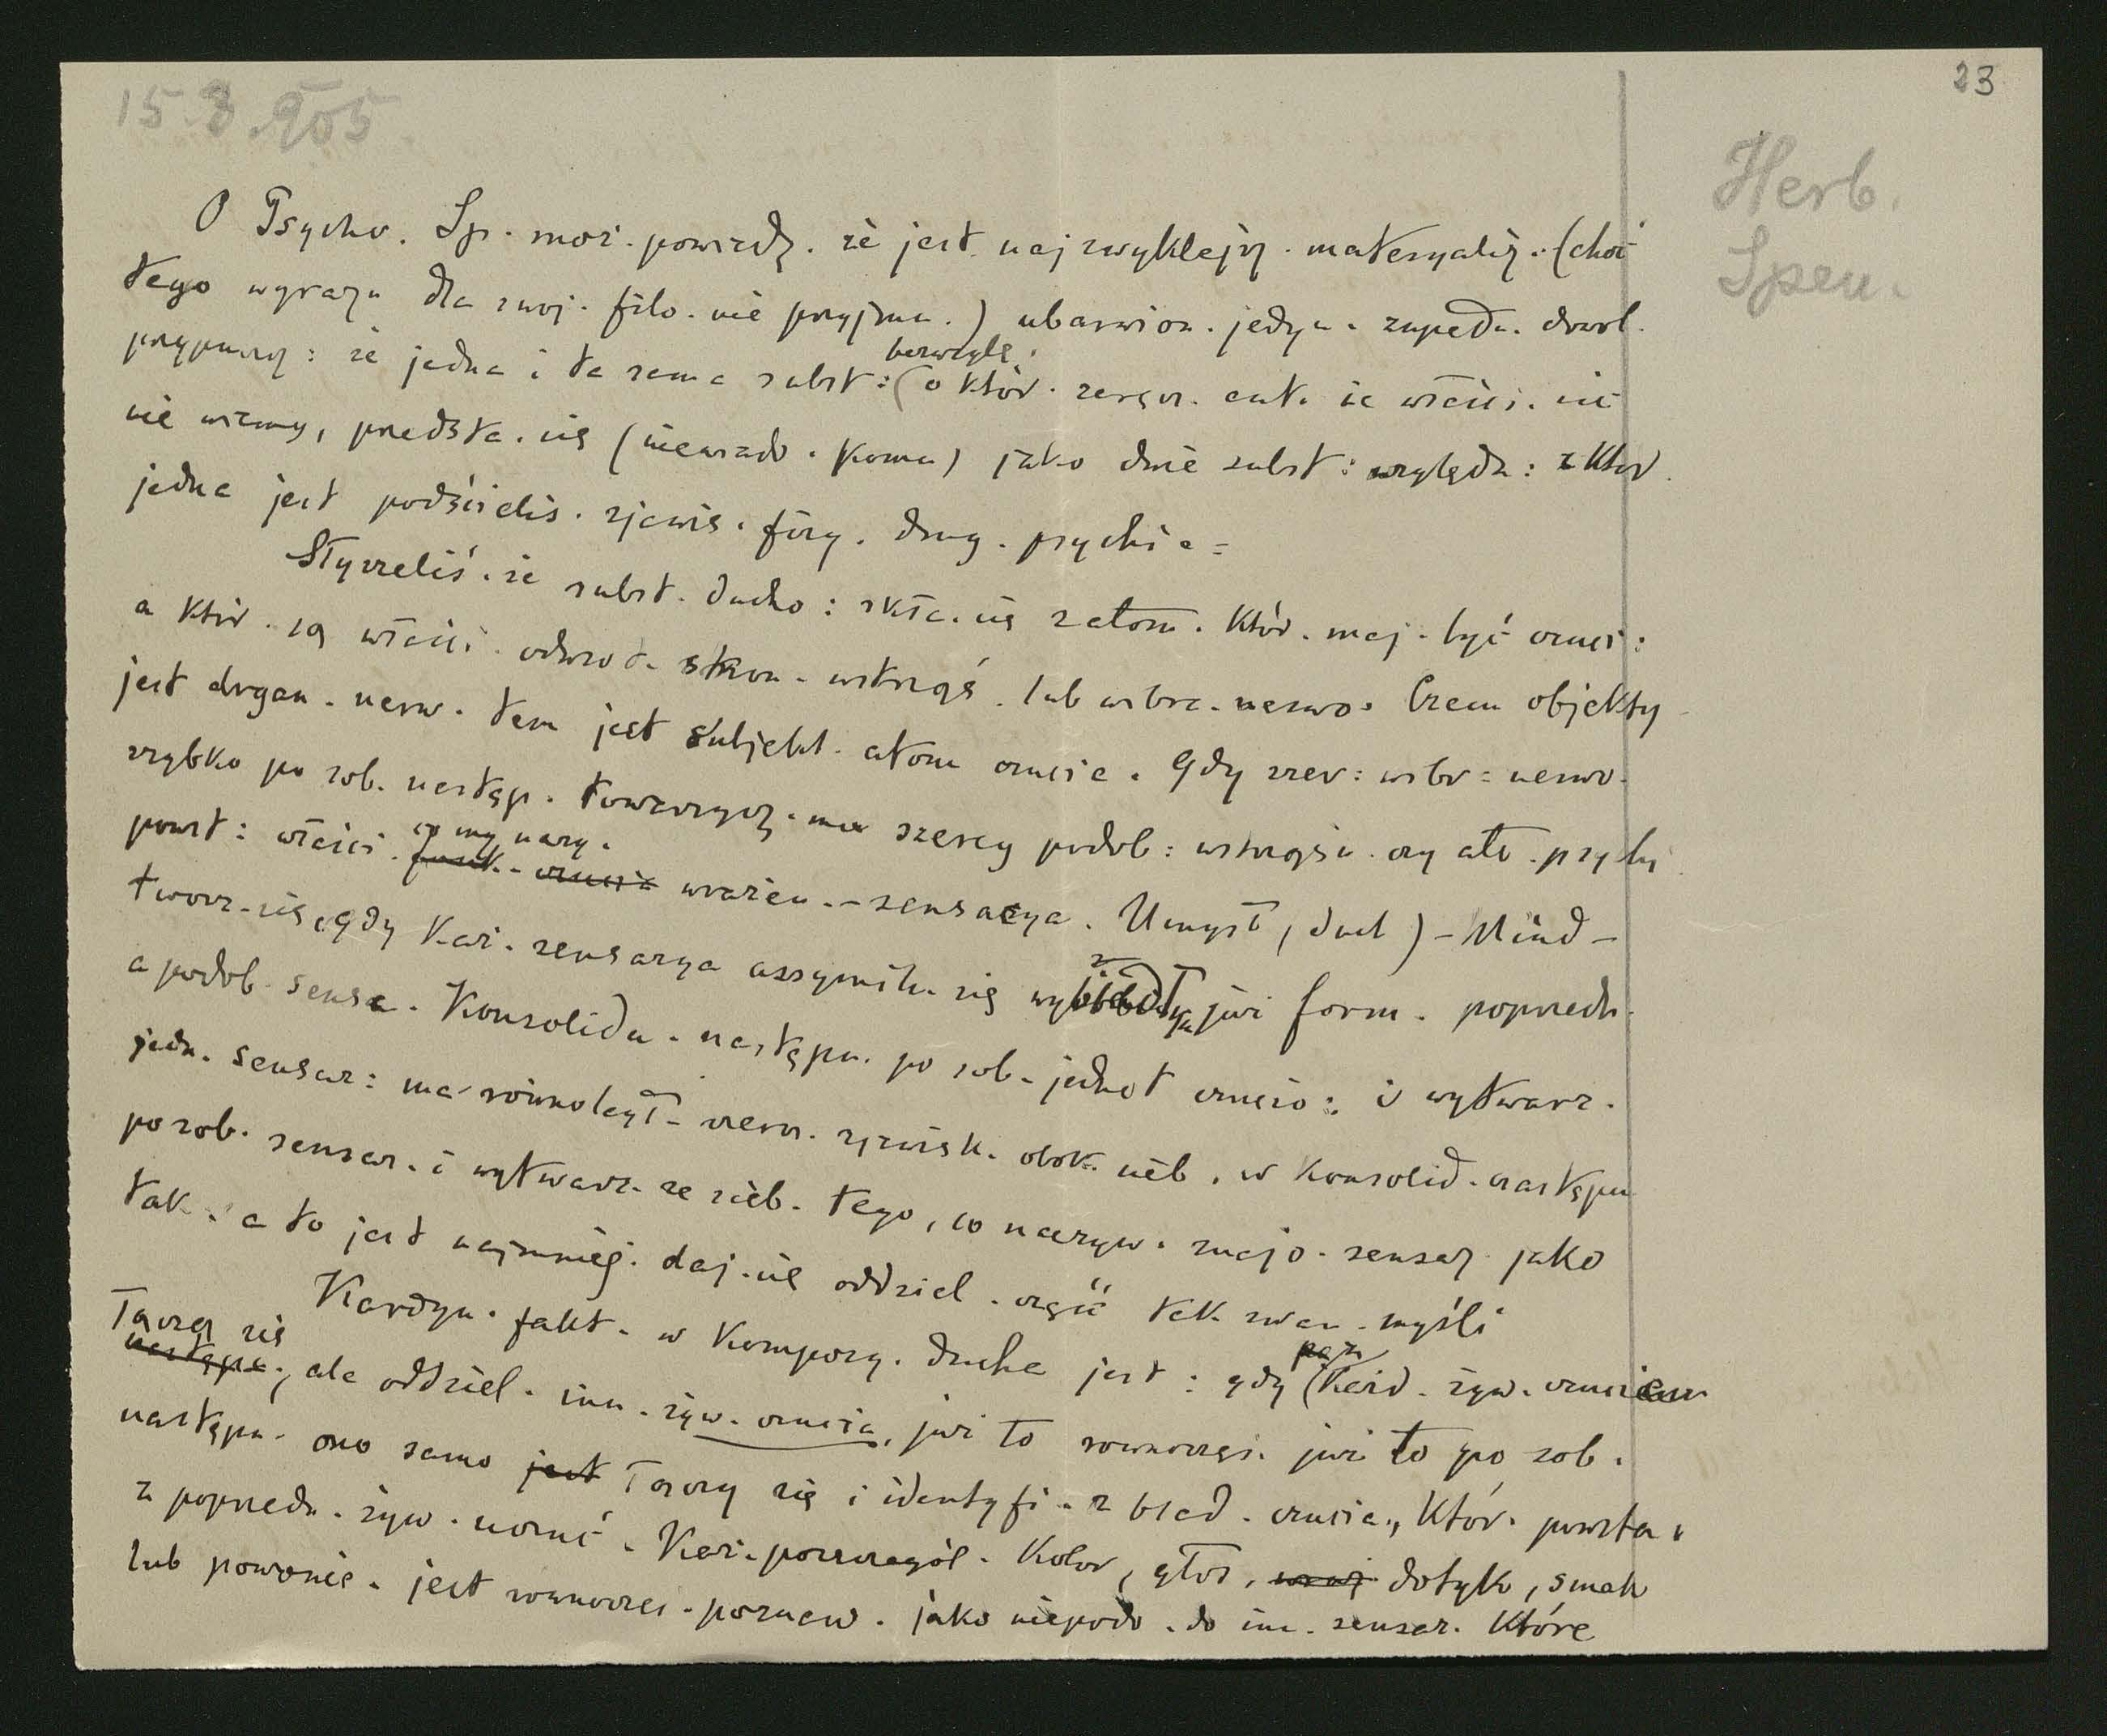 23
15.3.905
Herb.
Spen.
O Psycho. Sp. moż. powiedz. że jest najzwyklejsz. materyaliz. (choć
tego wyrazu dla swoj. filo. nie przyjmu.) ubarwion. jedyn. zupełn. dowol.
przypuszcz: że jedna i ta sama subst: (o któr. zaraz. że właści. nic
bezwzglę.
nie wiemy, przedsta. się (niewiado. komu) jako dwie subst: względn: z któr.
jedna jest podścielis. zjawis. fizy. drug. psychi a=
Słyszeliś. że subst. ducho: skła. się z atom. któr. maj. być czuci:
a któr. są właści. odwrot. stron. wstrząś. lub wibra. nerwo. Czem objekty
jest drgan. nerw. tem jest subjekt. atom czucia. Gdy szer: wibr: nerwo.
szybko po sob. następ. towarzysz. mu szereg podob: wstrząśn. czy ato. psychi
powst: właści. wrażen. - sensacya. Umysł, duch) - Mind -
co my nazy.
tworz. się, gdy każ. sensacya assymilu. się już form. poprzedn.
a podob. sensa. konsolidu. następn. po sob. jednost czucio: i wytwarz.
jedn. sensac: ma równoległ. szereg. zjawisk. obok nieb, w konsolid. następn
po sob. sensac. i wytwarz. ze sieb. tego, co nazyw. znajo. sensac. jako
tak. a to jest najmniej. daj. się oddziel. część tak zwan. myśli
Kardyn. fakt. w kompozy. ducha jest: gdy (każd. żyw. czuciem
Łączą się
następu., ale oddziel. inn. żyw. czucia, już to równocześ. już to po sob.
następn. ono samo jest łączy się i identyfi. z blad. czucia., któr. powsta.
z poprzedn. żyw. uczuć. Każ. poszczegól. kolor, głos, dotyk, smak
lub powonie. jest równocześ. poznaw. jako niepodo. do inn. sensac. które